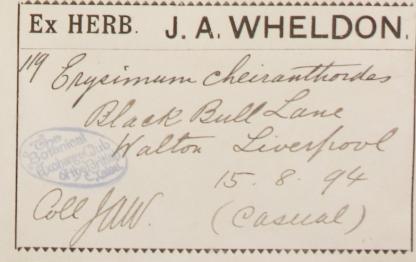 Ex HERB. J. A. WHELDON.
119 Erysimum cheiranthoides
Black Bull Lane
Walton Liverpool
The Botanical Exchange Club of the British Isles
15. 8. 94
Coll JAW. (Casual)